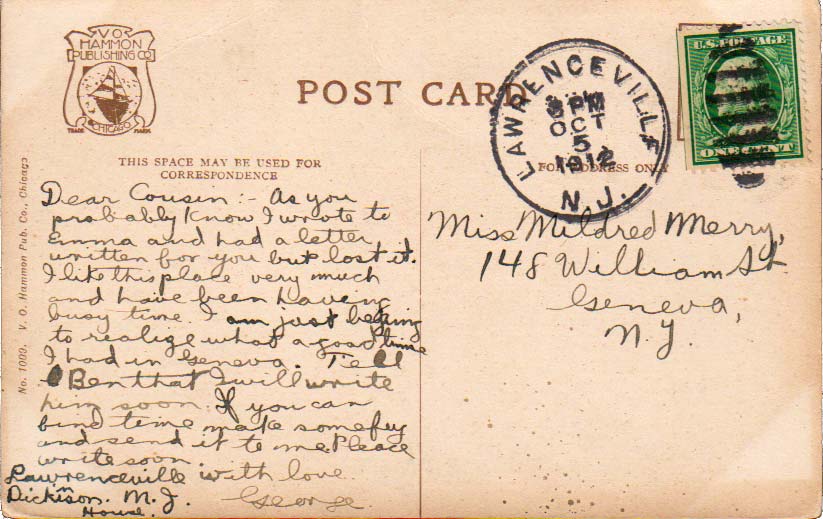 V O
HAMMON
PUBLISHING CO
TRADE MARK
CHICAGO
POST CARD
LAWRENCEVILLE
3 PM
OCT
5
1912
N.J.
U.S. POSTAGE
ONE CENT
THIS SPACE MAY BE USED FOR
CORRESPONDENCE
FOR ADDRESS ONLY
No. 1009. V. O. Hammon Pub. Co., Chicago
Dear Cousin:- As you
probably know I wrote to
Emma and had a letter
written for you but lost it.
I like this place very much
and have been having
busy time. I am just begining
to realize what a good time
I had in Geneva. Tell
Ben that I will write
him soon. If you can
find time make some
and send it to me. Please
write soon.
with love
George
Lawrenceville
Dickinson. N.J.
House.
Miss Mildred Merry,
148 William St
Geneva,
N.Y.